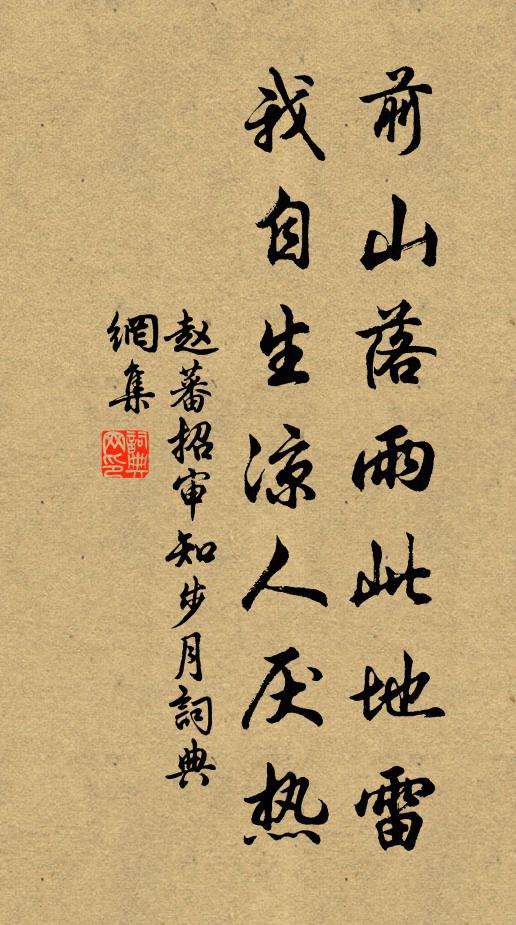 前山落雨此地雷
我自生凉人厌热
赵蕃招审知步月詞典
網集
詞典網印